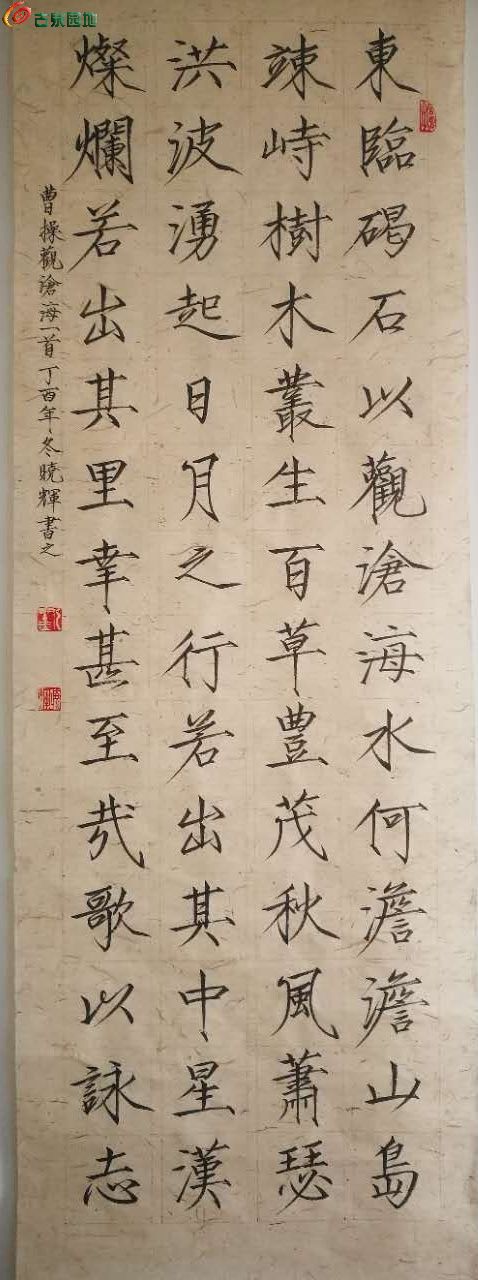 古泉园地
東臨碣石以觀滄海水何澹澹山島
竦峙樹木叢生百草豐茂秋風蕭瑟
洪波湧起日月之行若出其中星漢
燦爛若出其里幸甚至哉歌以詠志
曹操觀滄海一首丁酉年冬曉輝書之